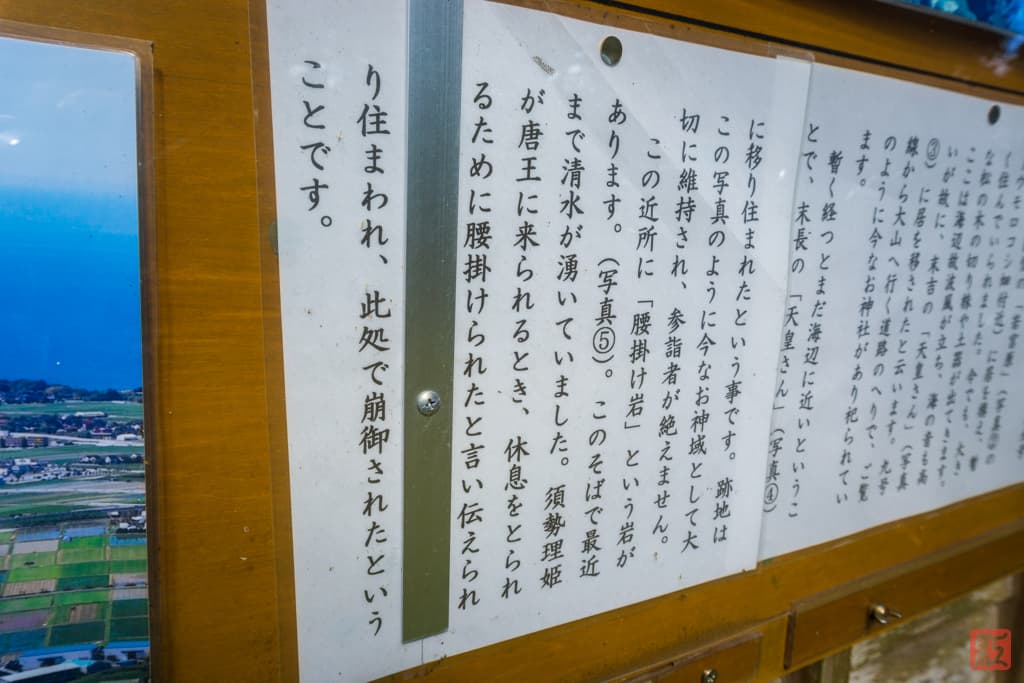 く住んでいられました。今でも、大き
な松の木の切り株や土器が出てきます。
ここは海辺故波風が立ち、海の音も高
いが故に、末吉の「天皇さん」(写真
③)に居を移されたと云います。九号
線から大山へ行く道路のへりで、ご覧
のように今なお神社があり祀られてい
ます。
暫く経つとまだ海辺に近いというこ
とで、末長の「天皇さん」(写真④)
に移り住まれたという事です。跡地は
この写真のように今なお神域として大
切に維持され、参詣者が絶えません。
この近所に「腰掛け岩」という岩が
あります。(写真⑤)。このそばで最近
まで清水が湧いていました。須勢理姫
が唐王に来られるとき、休息をとられ
るために腰掛けられたと言い伝えられ
り住まわれ、此処で崩御されたという
ことです。